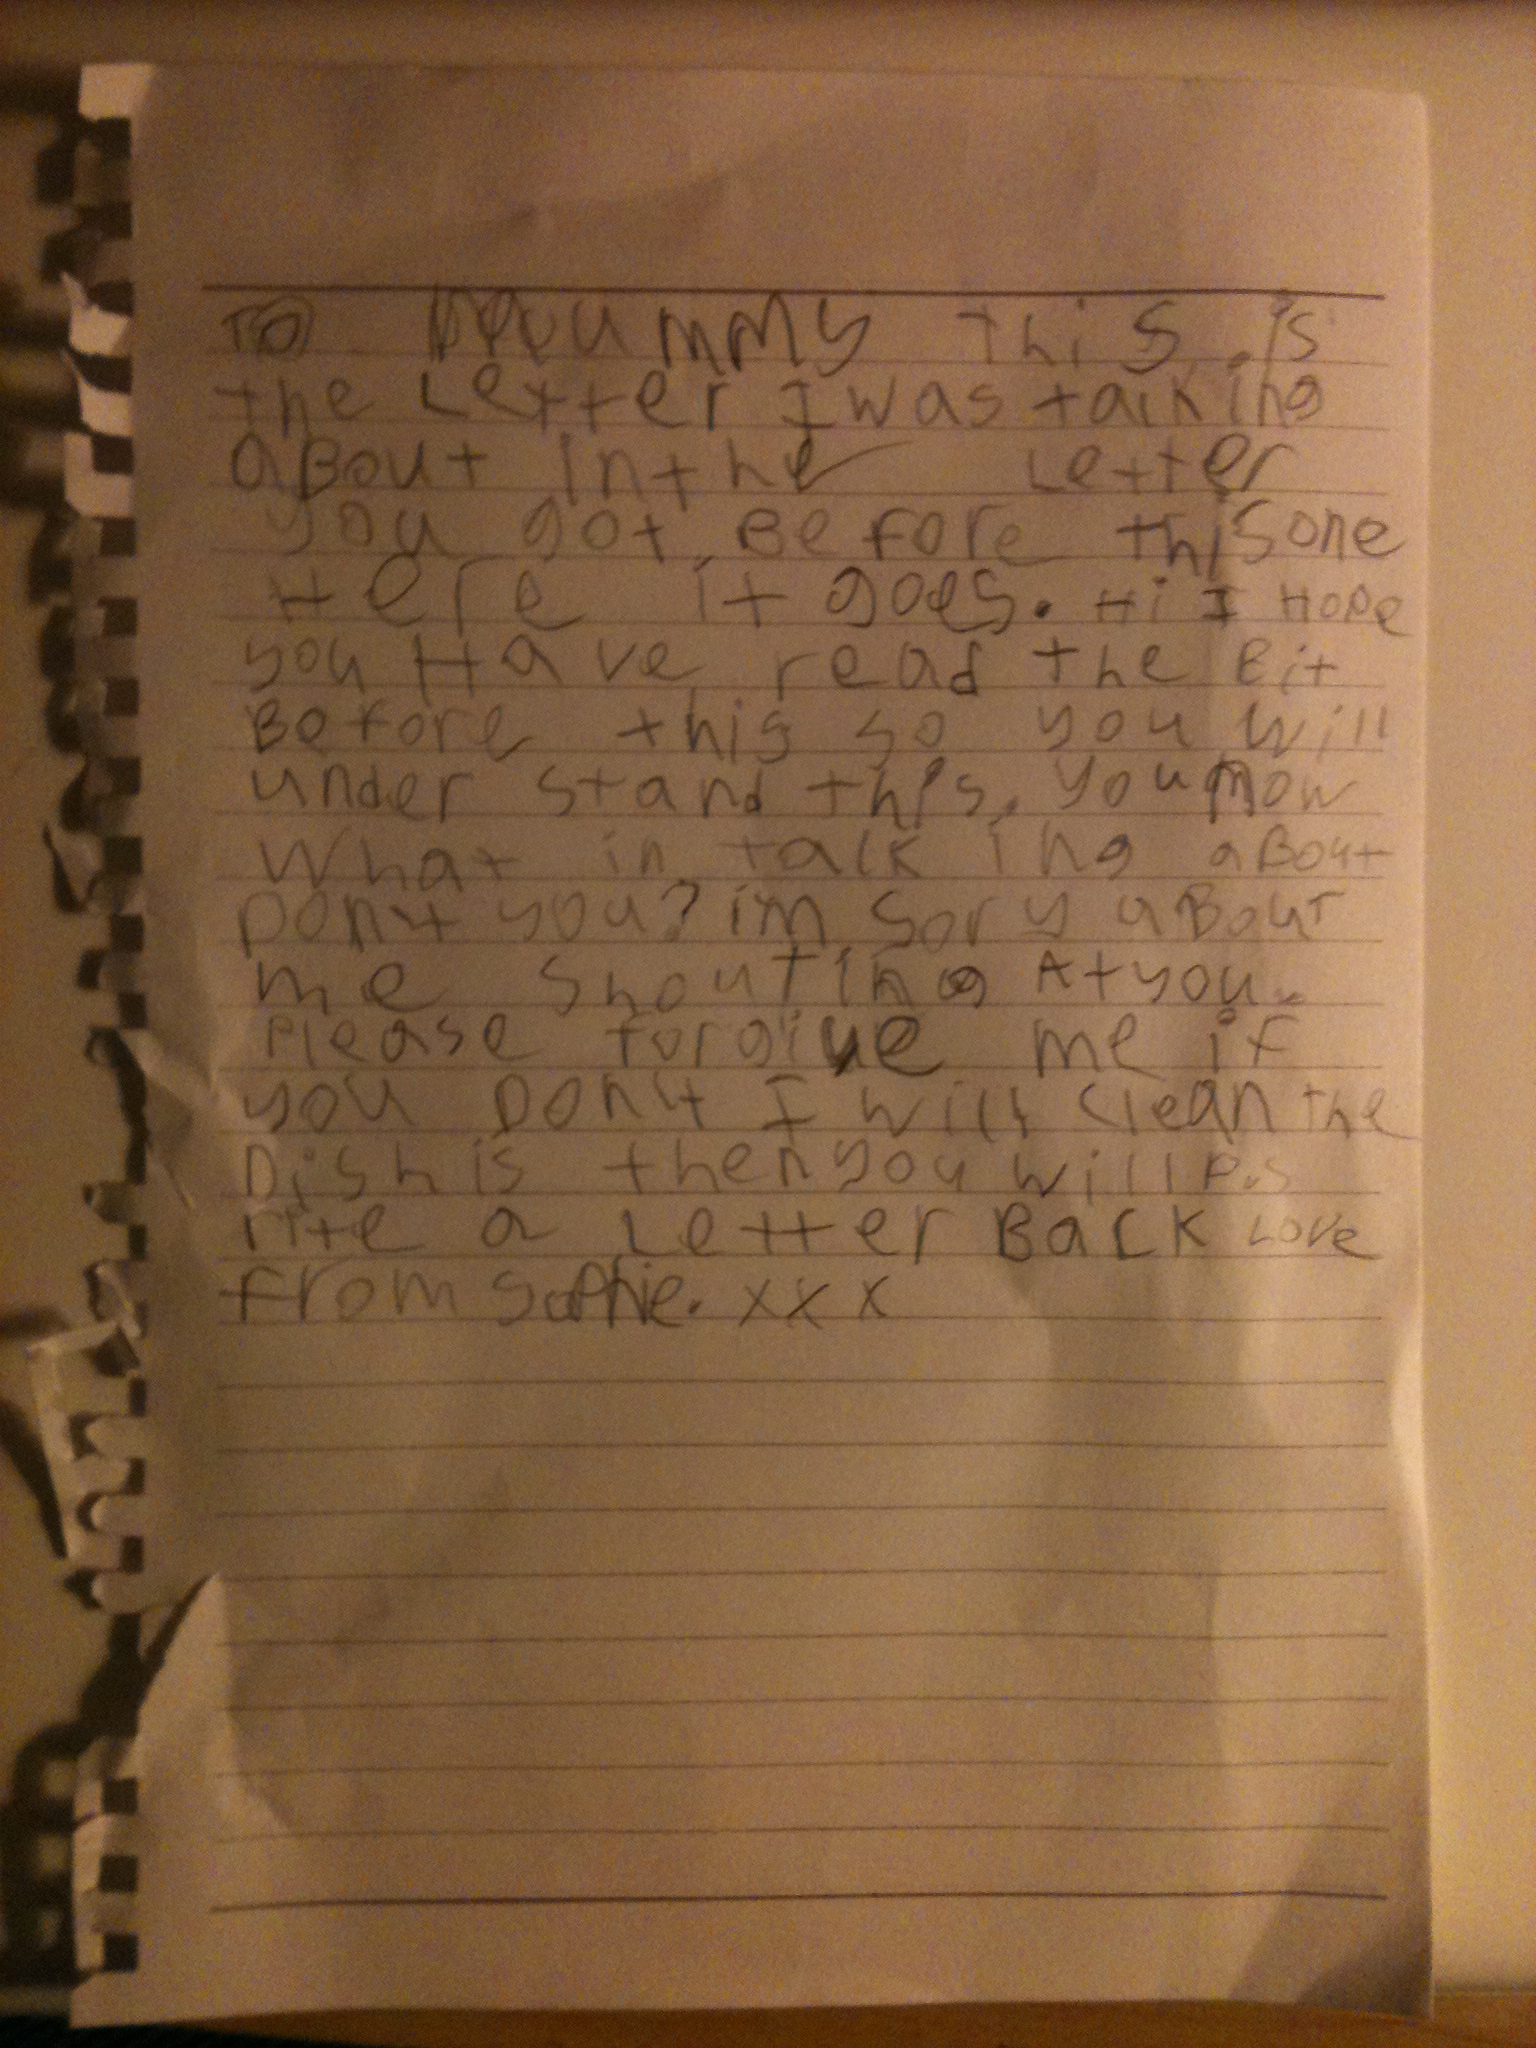 TO Mummy this is
the Letter I was talking
aBout in the Letter
you got Before this one
Here it goes. Hi I Hope
you Have read the Bit
Before this so you will
under stand this. you now
what im talk ing aBout
Dont you? im sory aBout
me shouting At you.
Please forgive me if
you Dont I will clean the
Dish is then you will P.s
rite a Letter Back Love
from Sophie. x x x